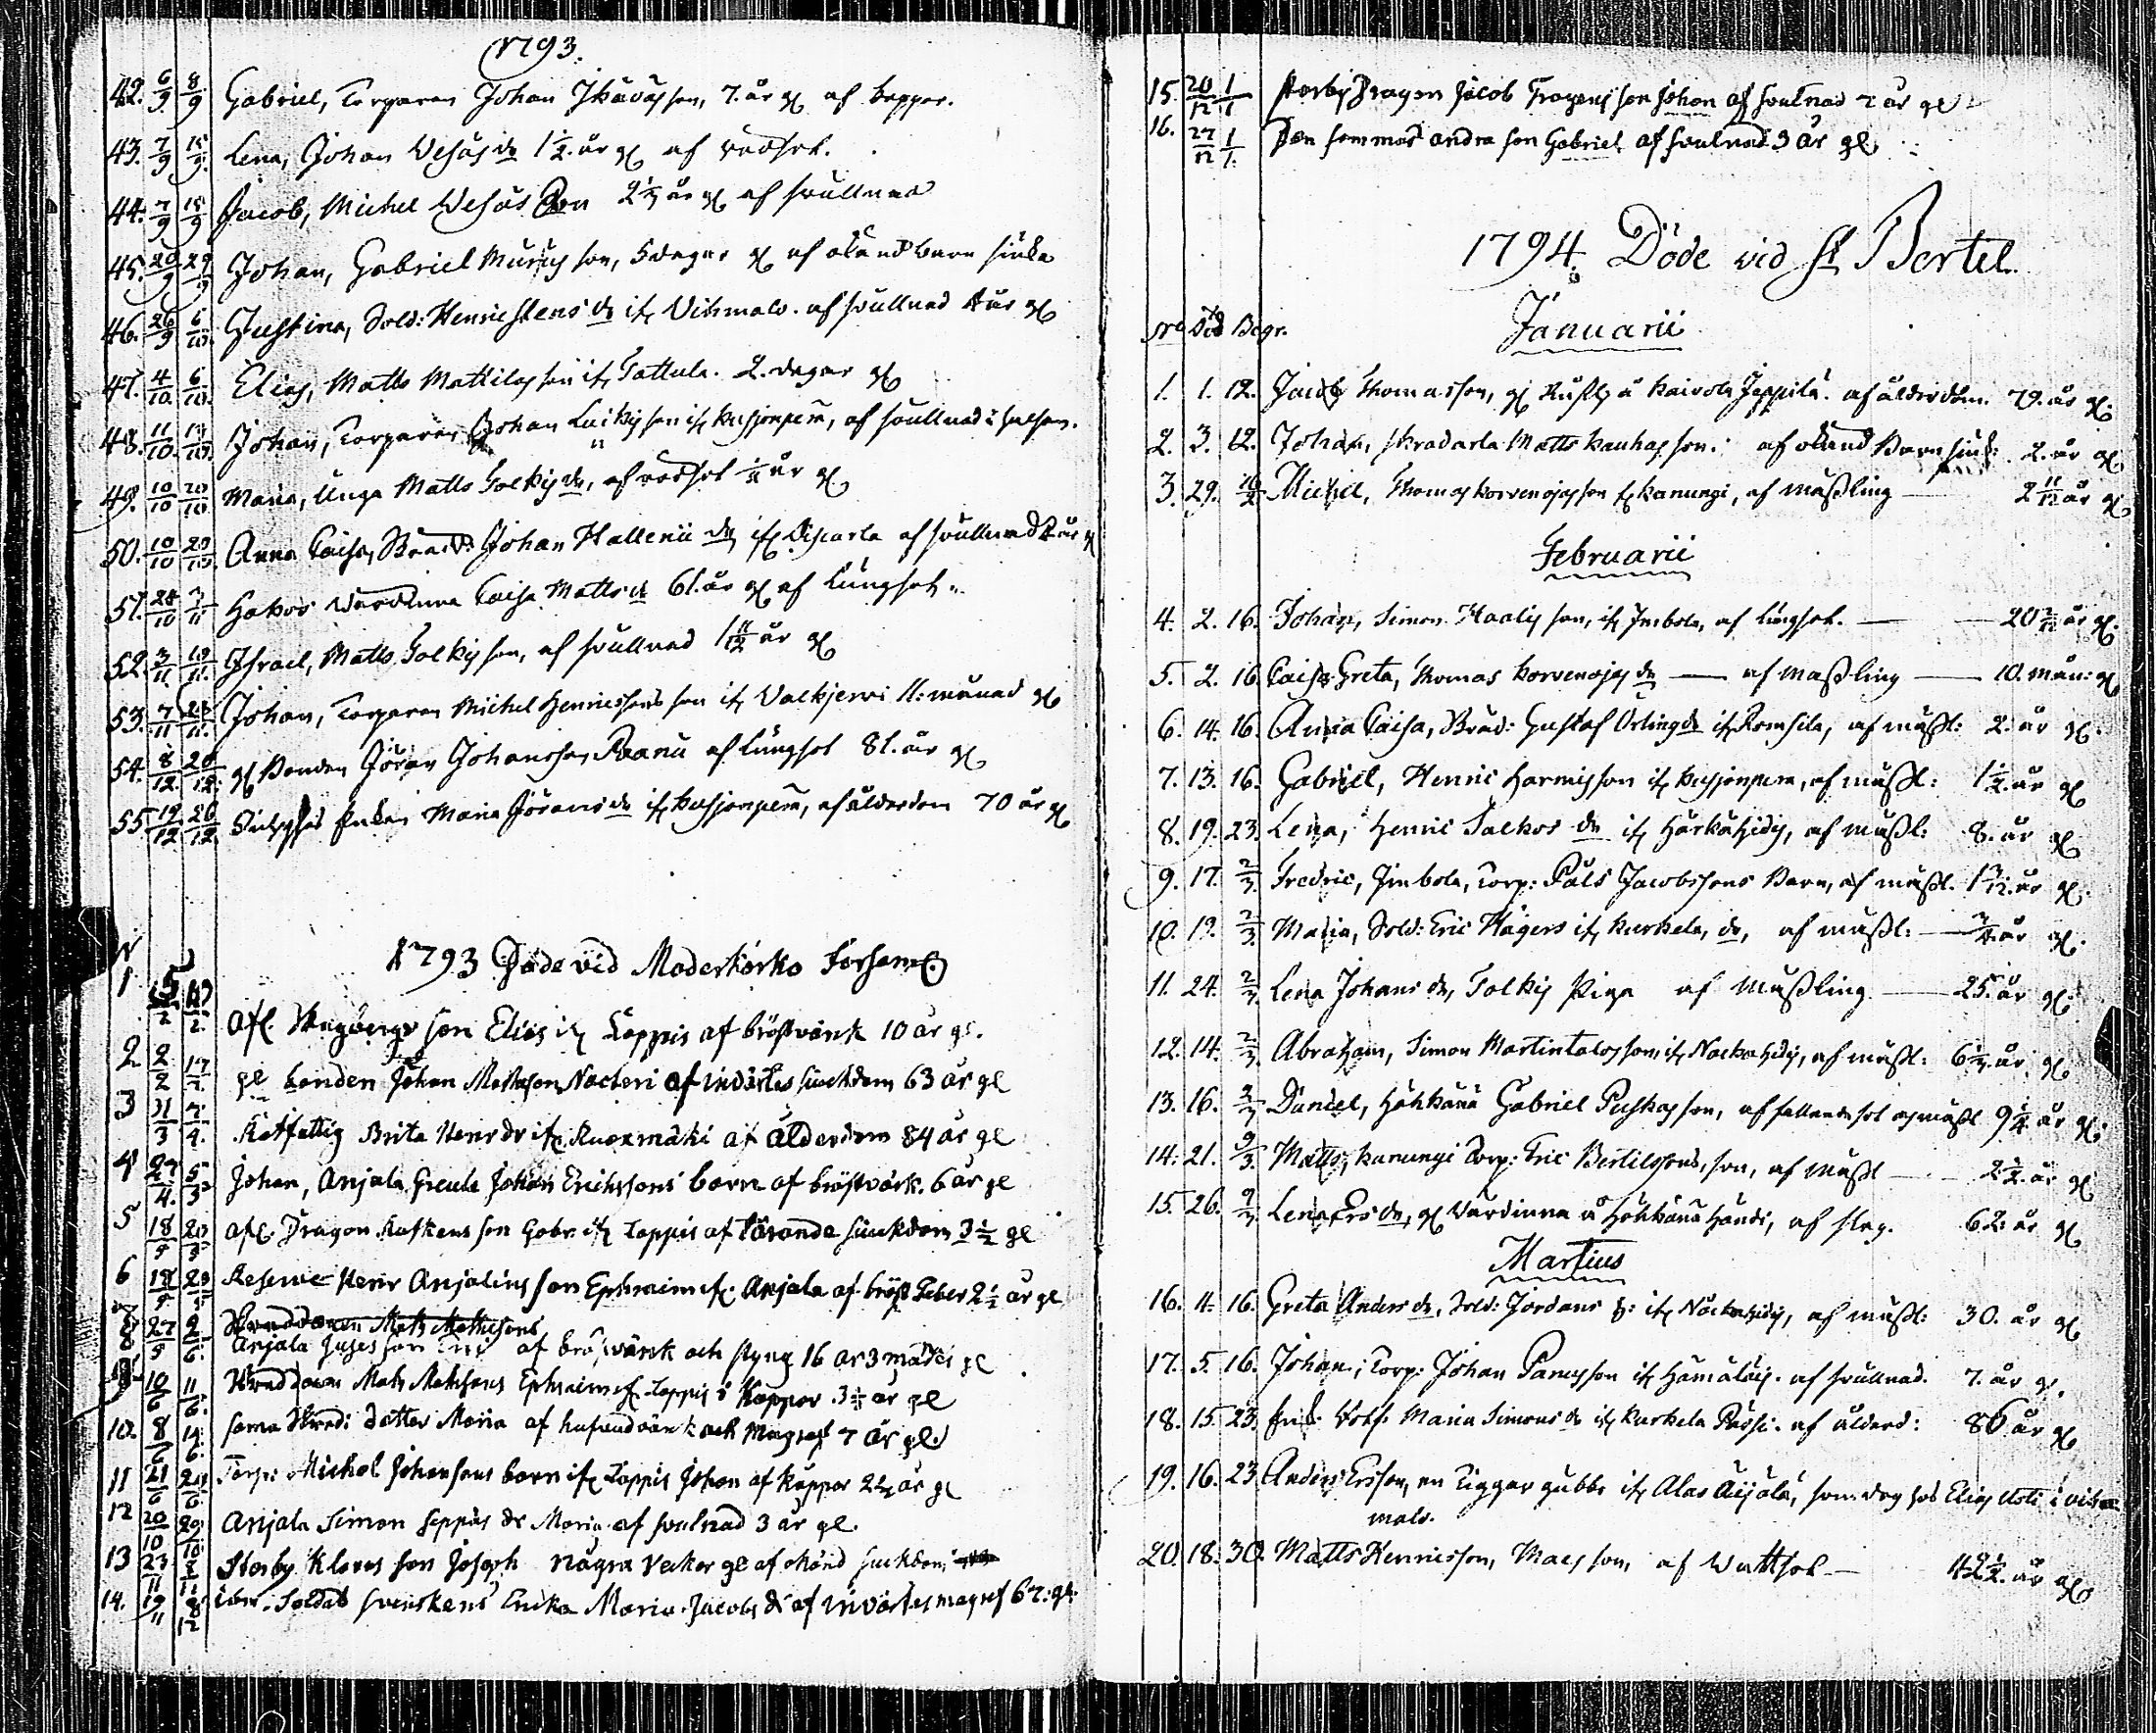 1793.
42. 6/9 8/9 Gabriel, Torparen Johan Ikäväs son, 7. år gl af koppor.
43. 7/9 15/9 Lena, Johan Wesas dr 1 1/2 år gl af rödsot.
44. 7/9 15/9 Jacob, Michel Wesas Son 2 1/2 år gl af svullnad
45. 20/9 29/9 Johan, Gabriel Murus son, 5 dagar gl af okänd barn siuka
46. 26/9 6/10 Justina, Sold: Henric Stens dr ifr Vitmalo. af svullnad år gl
47. 4/10 6/10 Elias, Matts Mattilas son ifr Tattula. 2. dagar gl
48. 11/10 13/10 Johan, Torparen Johan son ifr Kusjonperä, af svullnad i halsen.
49. 10/10 20/10 Maria, Unga Matts Solkis dr, af rödsot år gl
50. 10/10 20/10 Anna Caisa, Skradd: Johan Hallenii dr ifr af svullnad år gl
51. 28/10 3/11 Hakos Wärdinna Caisa Matts dr 61. år gl af Lungsot.
52. 3/11 10/11 Israel, Matts Solkis son, af svullnad 1 11/12 år gl
53. 7/11 23/11 Johan, Torparen Michel Henricssons son ifr Valkjerwi 11. månad gl
54. 8/12 20/12 gl Bonden Jöran Johansson Paanu af Lungsot 81. år gl
55. 19/12 26/12 Enkan Maria Jörans dr ifr Kusjonperä, af ålderdom 70 år gl
N 1793 Döde vid Moderkörko Församl.
1 /2 /2 Afl. son Elias ifr Loppis af bröstvärk 10 år gl.
2 2/2 17/2 gl bonden Johan Mattsson Nackeri af invärtes siuckdom 63 år gl
3 31/3 7/4 Rotfattig Brita Henr dr ifr Ruoxmäki af ålderdom 84 år gl
4 27/4 5/5 Johan, Anjala Greula Johan Erichssons barn af bröstvärk. 6 år gl
5 18/5 20/5 Afl. Dragon son Gabr. ifr Loppis af tärande siuckdom 3 1/2 gl
6 18/5 20/5 Reserve Henr Anjalins son Ephraim ifr Anjala af bröst feber 2 1/2 år gl
Skreddaren Mats Mathssons
8 27/5 2/6 Anjala son af bröstvärk och styng 16 år 3 måder gl
9 10/6 11/6 Skreddaren Mats Mathsons Ephraim ifr Loppis i koppor 3 år gl
10. 8/6 14/6 sama Skred: dotter Maria af hufvudvärk och magref 7 år gl.
11 21/6 24/6 Torp: Michel Johansons barn ifr Loppis Johan af koppor 2 1/2 år gl
12 20/10 29/10 Anjala Simon Seppäs dr Maria af svulnad 3 år gl.
13 23/11 Storby Klares son Joseph några veckor gl af okänd siuckdom
14. 19/11 8/12 Soldat Svenskens Enka Maria Jacobs dr af invärtes magref 67: gl.
15. 20/12 1/1 Storby Dragon Jacob son Johan af svulnad 7 år gl
16. 27/12 1/1 Den sammas andra son Gabriel af svulnad 3 år gl
1794. Döde vid St Bertel
Nro Död Begr.
Januarii
1. 1. 12. Jacob Thomasson, gl å Kaivola Jeppilä. af ålderdom. 79. år gl.
2. 3. 12. Johan, Skradarla Matts Kauhas son. af okänd Barn siuk: 2. år gl
3. 29. 16/2 Michel, Thomas Korvenojas son fr Kanungi, af mässling 2 11/12 år gl
Februarii
4. 2. 16. Johan, Simon Haalis son, ifr Imbola, af lungsot. — 20 år gl.
5. 2. 16. Caisa Greta, Thomas Korvenojas dr — af mässling — 10. mån: gl
6. 14. 16. Anna Caisa, Skräd: Gustaf Orling dr ifr Romsila, af mässl: 2. år gl.
7. 13. 16. Gabriel, Henric Harmis son ifr Kusjonperä, af mässl: 1 1/2. år gl
8. 19. 23. Lena, Henric Salkos dr ifr Härkähidy, af mässl: 8. år gl
9. 17. 2/3. Fredric, Imbola, Torp: Påls Jacobssons Barn, af mässl. 1 år gl.
10. 19. 2/3. Maria, Sold: Eric Hägers ifr Kurkela, dr, af mässl: — 3/4 år gl.
11. 24. 2/3 Lena Johans dr, Solkis Piga af Mässling — 25. år gl.
12. 14. 2/3 Abraham, Simon Martintalos son, ifr Nackahidy, af mässl: 6 1/2 år gl
13. 16. 2/3 Daniel, Höhkänä Gabriel Puskas son, af fallandesot o mässl 9 1/4 år gl.
14. 21. 9/3. Matts, Kanungi Torp: Eric Bertilssons, son, af mässl — 2 1/2. år gl
15. 26. 9/3 Lena Ers dr, gl Värdinna å Höhkänä Händi, af slag. 62. år gl
Martius
16. 11. 16. Greta Anders dr, Sold: Jordans h: ifr Nackahidy, af mässl: 30. år gl
17. 5. 16. Johan, Torp: Johan Panus son ifr Hämäläis. af svullnad. 7. år gl.
18. 15. 23. Maria Simons dr ifr Kurkela Pässi. af ålderd: 86. år gl
19. 16. 23 Anders Ersson, en Tiggar gubbe ifr Alas Äijälä, som dog hos Elias i
malo.
20. 18. 30. Matts Henricsson, Maes son, af Wattsot — 42 1/2. år gl.